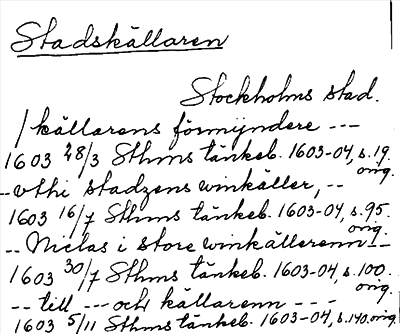 Stadskällaren
Stockholms stad.
/ källarens förmÿndere ---
1603 28/3 Sthms tänkeb. 1603-04, s.19.
orig.
--vthi stadzens winkäller, --
1603 16/7 Sthms tänkeb. 1603-04, s.95.
orig.
-- Niclas i store winkällerenn --
1603 30/7 Sthms tänkeb. 1603-04, s.100.
orig.
-- till --- och källarenn ---
1603 5/11 Sthms tänkeb. 1603-04, s.140.orig.